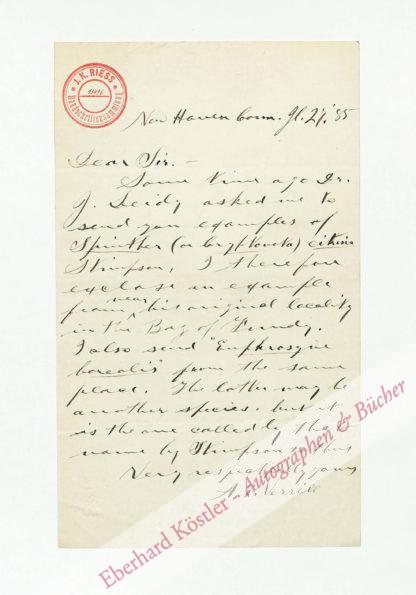 J. K. RIESS
Handschriftensammlung
New Haven Conn. Jl. 27, '85
Dear Sir. –
Some time ago Dr.
J. Leidy asked me to
send you examples of
Spinther (or Cryptonota) citrina
Stimpson, I therefore
enclose an example
from near his original locality
in the Bay of Fundy.
I also send "Euphrosyne
borealis" from the same
place. The latter may be
another species, but it
is the one called by that
name by Stimpson
Very respectfully yours
A. E. Verrill
Eberhard Köstler - Autographen & Bücher